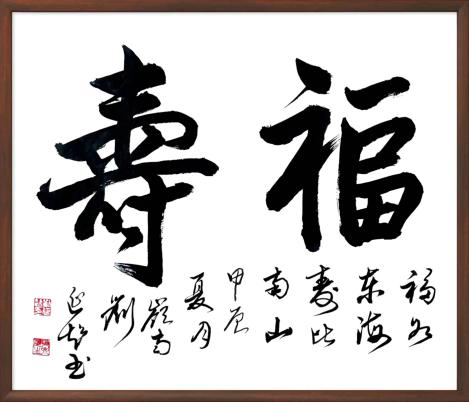 福寿
福如
东海
寿比
南山
甲辰
夏月
岭南